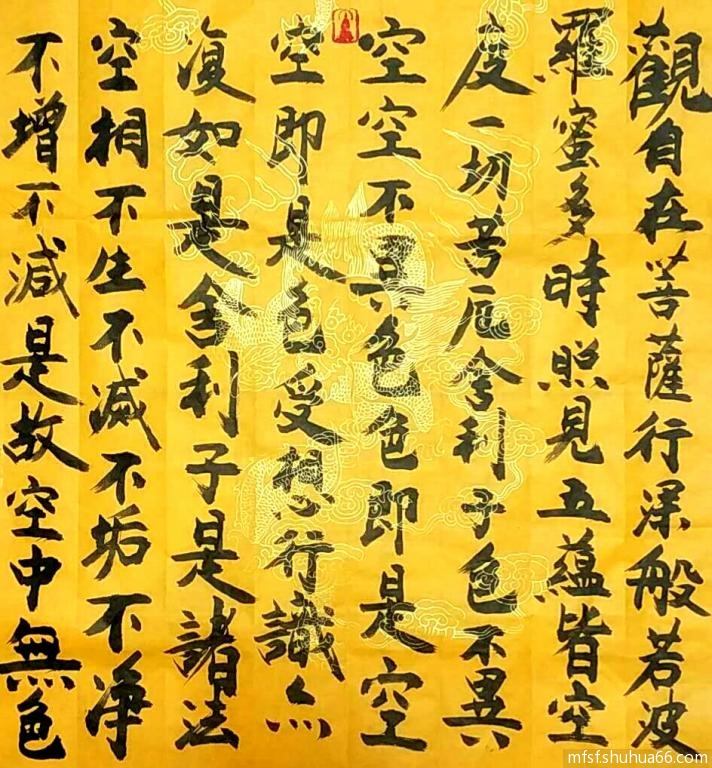 觀自在菩薩行深般若波
羅蜜多時照見五蘊皆空
度一切苦厄舍利子色不異
空空不異色色即是空
空即是色受想行識亦
復如是舍利子是諸法
空相不生不滅不垢不淨
不增不減是故空中無色
mfsf.shuhua66.com